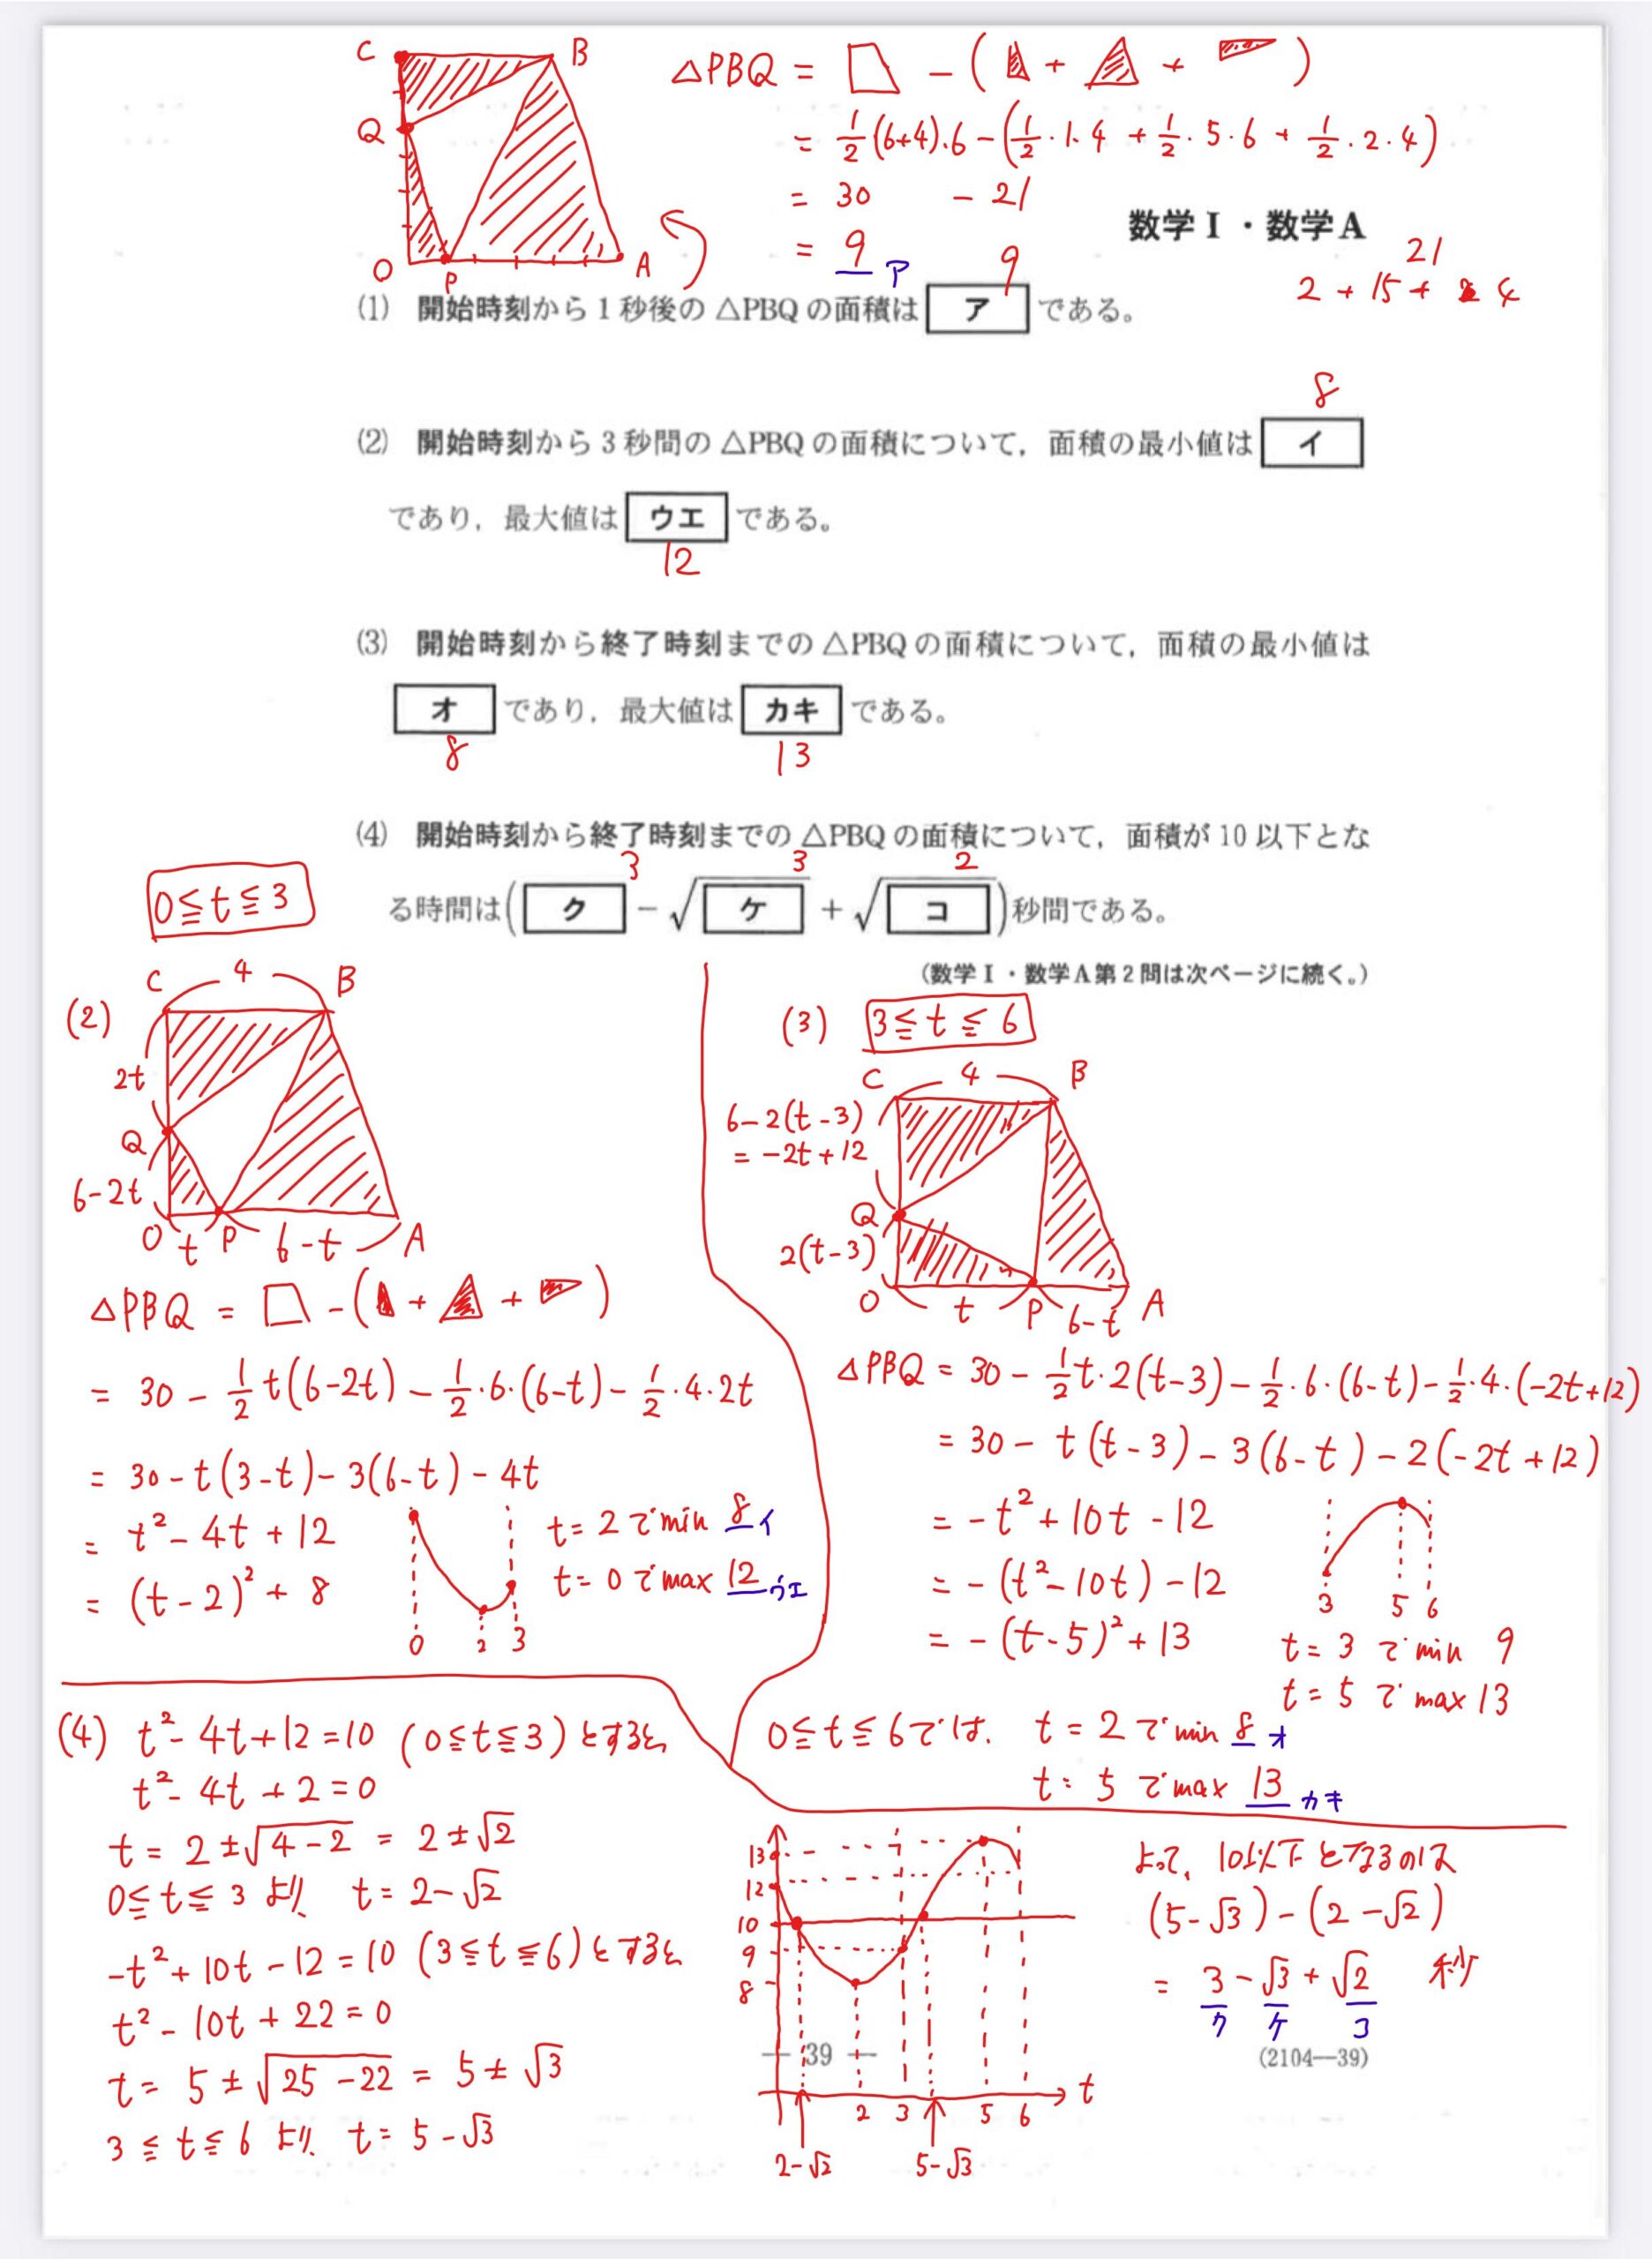 C B
Q
O P A
△PBQ = □ - ( △ + △ + ▽ )
= 1/2 (6+4)・6 - (1/2・1・4 + 1/2・5・6 + 1/2・2・4)
= 30 - 21
= 9 ア
数学Ⅰ・数学A
21
2 + 15 + 4
9
(1) 開始時刻から1秒後の △PBQ の面積は ア である。
8
(2) 開始時刻から3秒間の △PBQ の面積について,面積の最小値は イ
であり,最大値は ウエ である。
12
(3) 開始時刻から終了時刻までの △PBQ の面積について,面積の最小値は
オ であり,最大値は カキ である。
8 13
(4) 開始時刻から終了時刻までの △PBQ の面積について,面積が10以下とな
3 3 2
る時間は(ク - √ケ + √コ)秒間である。
(数学Ⅰ・数学A第2問は次ページに続く。)
0≦t≦3
(2)
C 4 B
2t
Q
6-2t
O t P 6-t A
△PBQ = □ - ( △ + △ + ▽ )
= 30 - 1/2 t(6-2t) - 1/2・6・(6-t) - 1/2・4・2t
= 30 - t(3-t) - 3(6-t) - 4t
= t² - 4t + 12
= (t-2)² + 8
0 2 3
t=2で min 8 イ
t=0で max 12 ウエ
(3) 3≦t≦6
C 4 B
6-2(t-3)
= -2t+12
Q
2(t-3)
O t P 6-t A
△PBQ = 30 - 1/2 t・2(t-3) - 1/2・6・(6-t) - 1/2・4・(-2t+12)
= 30 - t(t-3) - 3(6-t) - 2(-2t+12)
= -t² + 10t - 12
= -(t²-10t) - 12
= -(t-5)² + 13
3 5 6
t=3で min 9
t=5で max 13
0≦t≦6では、 t=2で min 8 オ
t=5で max 13 カキ
(4) t² - 4t + 12 = 10 (0≦t≦3)とすると
t² - 4t + 2 = 0
t = 2±√4-2 = 2±√2
0≦t≦3 より、 t = 2-√2
-t² + 10t - 12 = 10 (3≦t≦6)とすると
t² - 10t + 22 = 0
t = 5±√25-22 = 5±√3
3≦t≦6 より、 t = 5-√3
13
12
10
9
8
2 3 5 6 t
2-√2 5-√3
よって、10以下となるのは
(5-√3) - (2-√2)
= 3 - √3 + √2 秒
ク ケ コ
— 39 —
(2104—39)